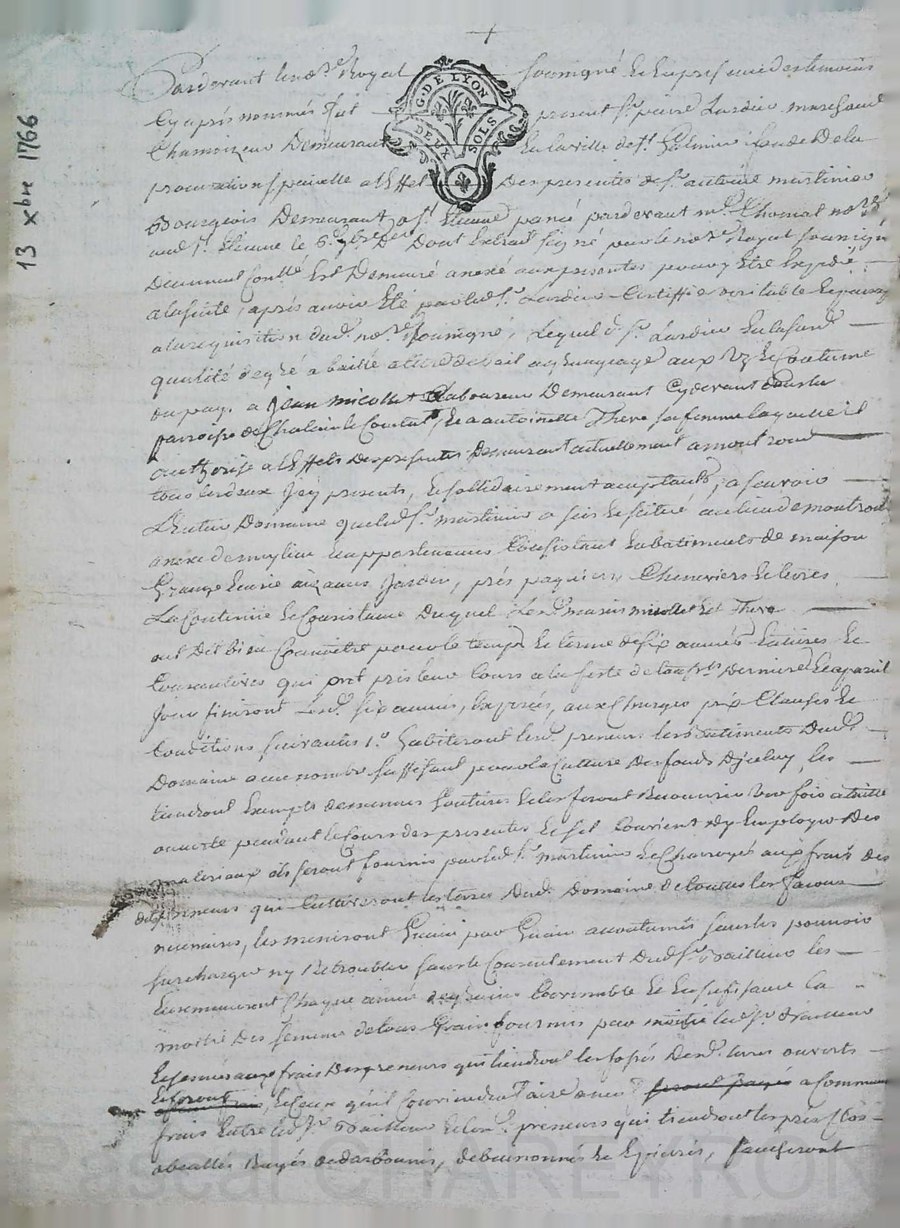 13 xbre 1766
G. DE LYON
DEUX SOLS
Pardevant le no.re Royal soussigné et en presence des temoins
cy après nommés fut present s.r pierre Lardier marchand
Chamoizeur Demeurant en la ville de s.t Galmier fondé De la
procuration specialle a l'effet Des presentes de s.r antoine martinier
Bourgeois Demeurant a s.t Etienne pardevant m.e Thomas no.re
aud. s.t Etienne le 6.e Dont Extrait signé par le no.re Royal soussigné
Est Demeuré anexé aux presentes pour y Etre Expedié
a la suite, après avoir Eté par led. s.r Lardier Certiffié veritable
a la requisition dud. no.re soussigné, Lequel d. s.r Lardier En lad.
qualité a baillé a titre de bail a grangeage aux us et Coutume
du pays a jean micollet Laboureur Demeurant Cy devant dans la
parroisse de Chalain le Comtal, et a antoinette Theve sa femme laquelle il
authorise a l'Effet Des presentes Demeurant actuellement a montrond
tous les deux icy presents, et sollidairement acceptants, a sçavoir
L'entier Domaine que led. s.r martinier a sis et scitué au lieu de montrond
anexe de meylieu Consistant En batiments de maison
Grange Ecurie aizances Jardin, prés paquiers Cheneviers et terres
La Contenue et Consistance Duquel Les d. mariés micollet et Theve
ont Dit bien Connoitre pour le temps et terme de six années Entieres et
Consecutives qui ont pris leur Cours a la feste de toussts Derniere et a pareil
Jour finiront Lesd. six années, Expirées, aux Charges prix Clauses et
Conditions suivantes 1.o habiteront lesd. preneurs les Batiments Dud.
Domaine a un nombre suffisant pour la Culture Des fonds D'iceluy, les
tiendront Exempts de menues Goutieres et les feront Recouvrir une fois a tuille
ouverte pendant le Cours des presentes Et s'il Convient d'y Employer Des
materiaux ils seront fournis par led. s.r martinier et Charroyés aux frais des
dits preneurs qui Cultiveront les terres Dud. Domaine de touttes les façons
necessaires, les meneront Guain par Guain accoutumés sans les pouvoir
surcharger ny Retroubler sans le Consentement Dud. s.r Bailleur les
Ensemenceront Chaque année En la
moitié Des semences de tous Grains fournis par moitié led. s.r Bailleur
aux frais Des preneurs qui tiendront les fossés Desd. terres ouverts
et feront et Ceux qu'il Conviendra faire a neuf a Communs
frais Entre led. s.r Bailleur et lesd. preneurs qui tiendront les prés Clos
abeallés Rayés debuissonnés et Epierrés, faucheront
Pascal CHAREYRON